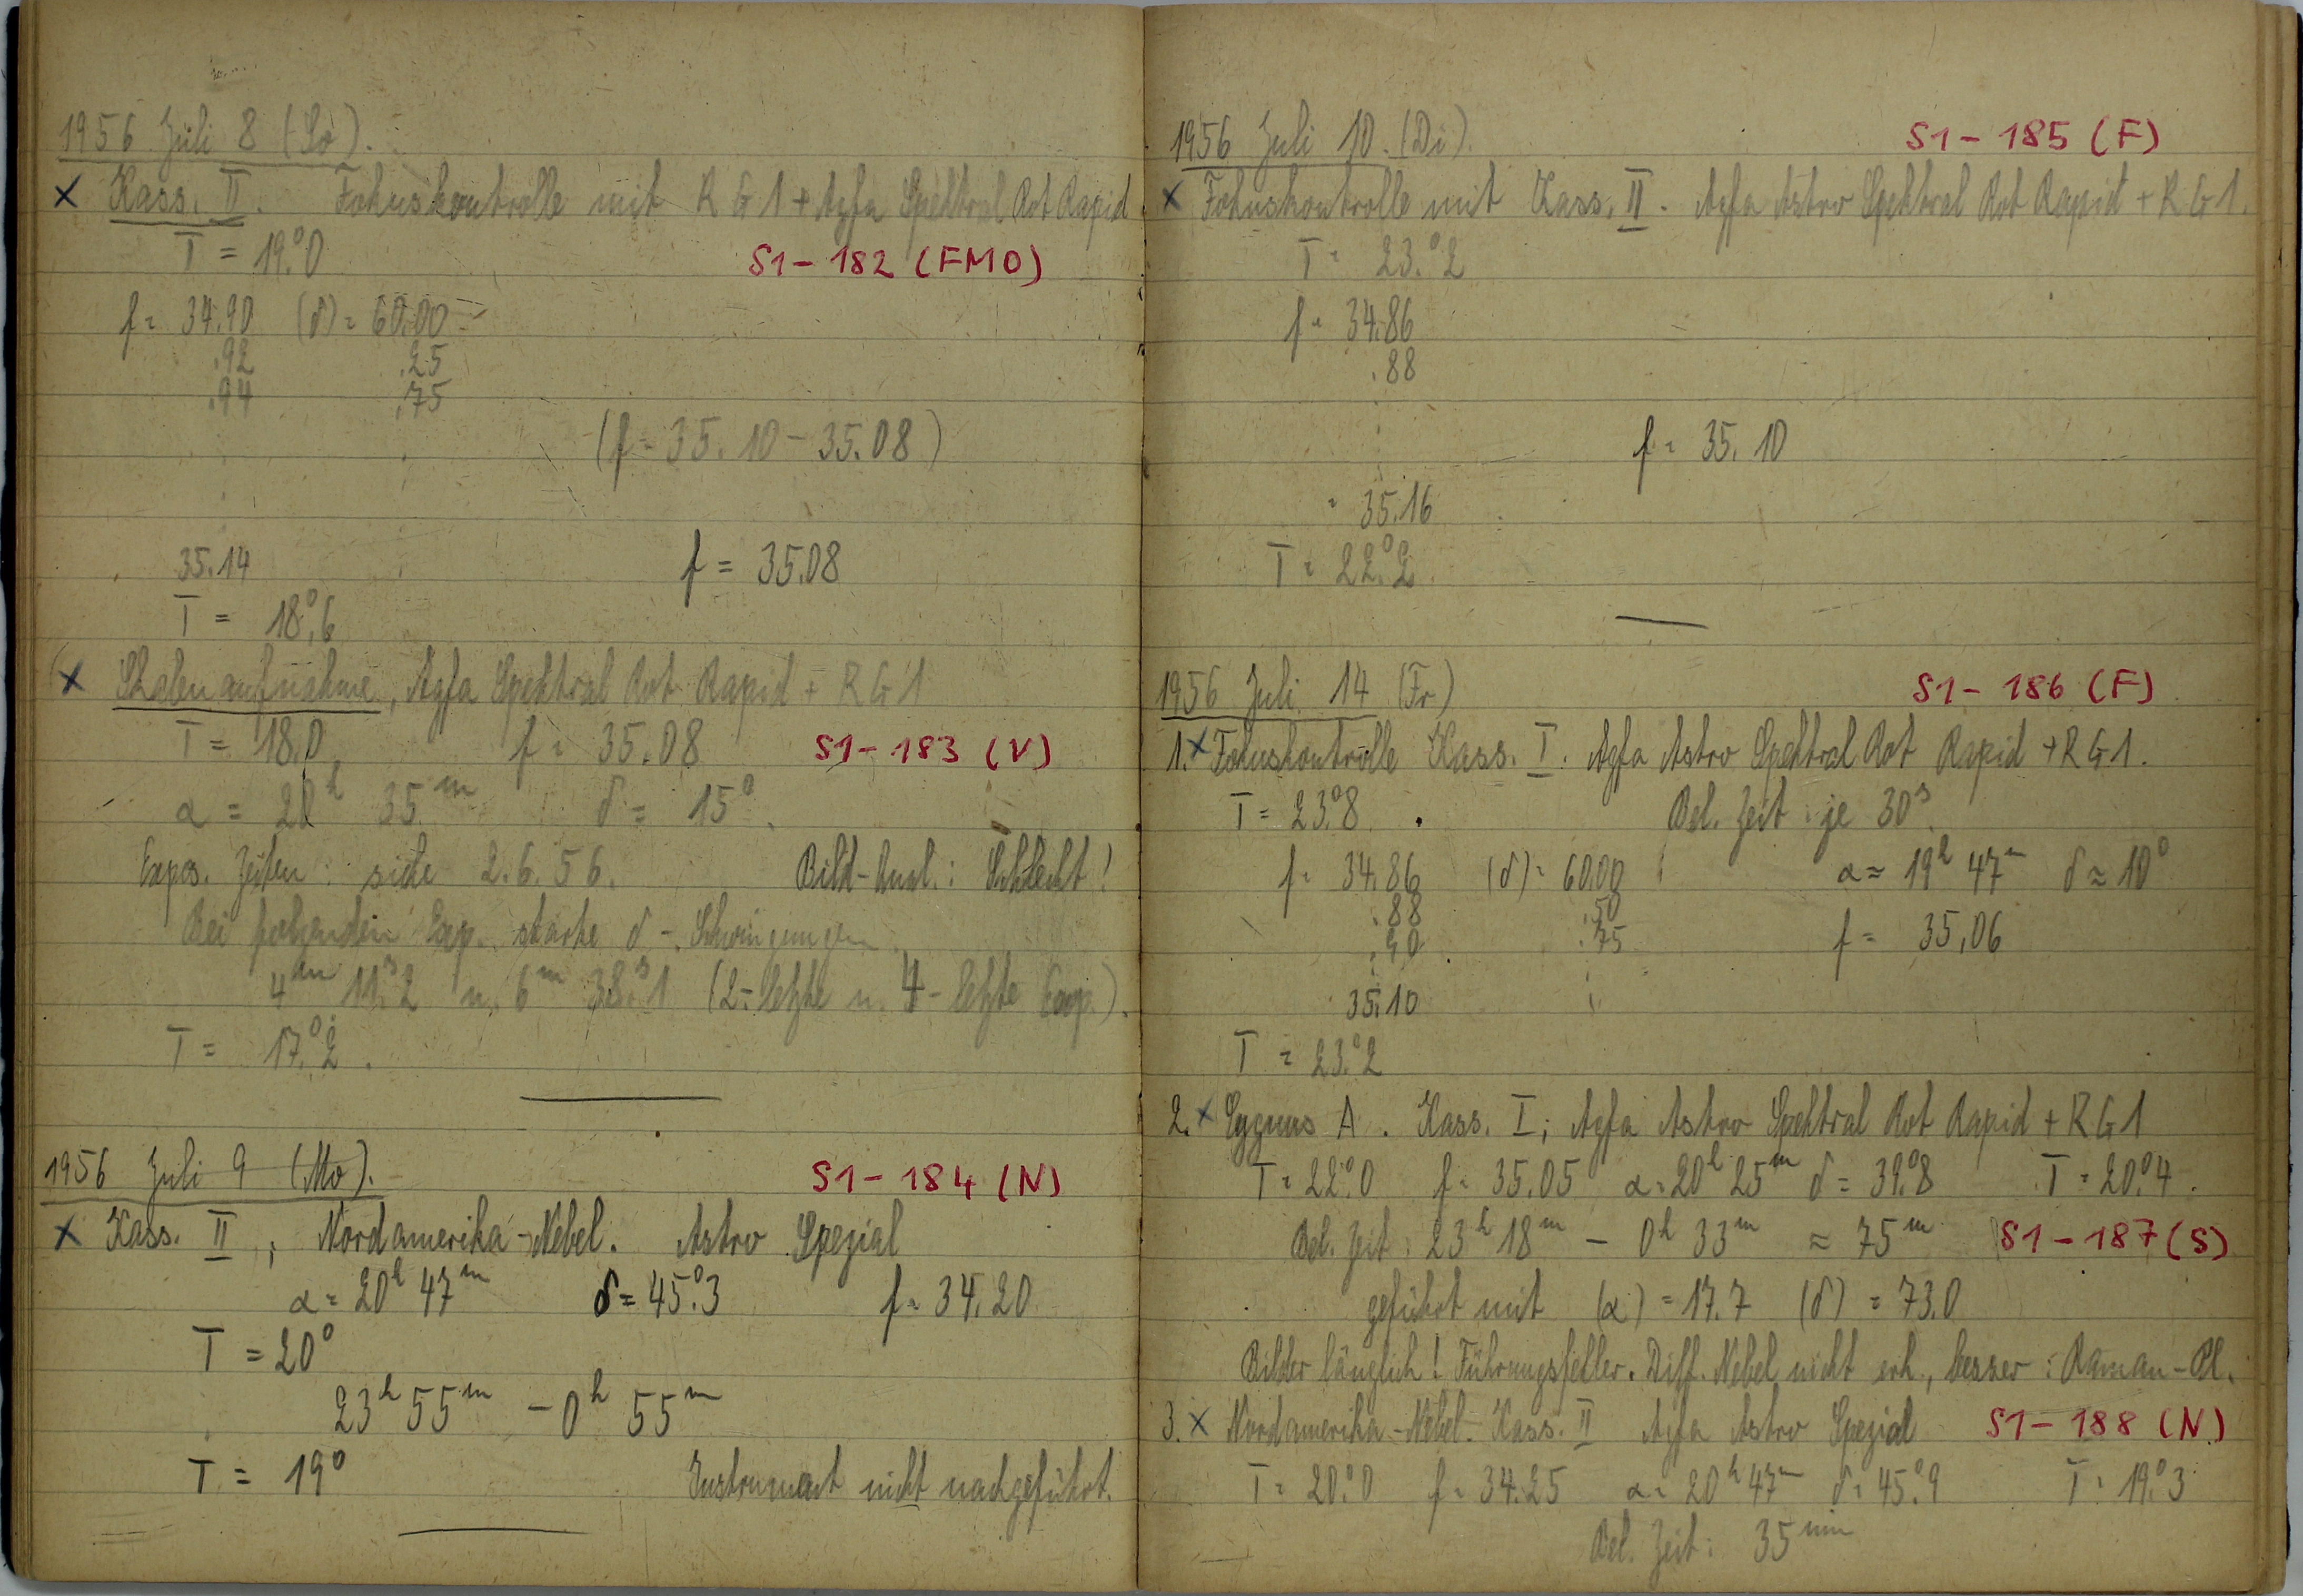 1956 Juli 8 (So).
x Kass. II. Fokuskontrolle mit RG1 + Agfa Spektral Rot Rapid
T = 19.°0
S1 - 182 (FMO)
f = 34.90 (δ) = 60.00
.92 .25
.94 .75
(f = 35.10 - 35.08)
35.14 f = 35.08
T = 18.°6
x Skalenaufnahme, Agfa Spektral Rot Rapid + RG1
T = 18.0 f = 35.08 S1 - 183 (V)
α = 20h 35m δ = 15°.
Expos. Zeiten: siehe 2.6.56. Bild-Qual.: Schlecht!
Bei folgenden Exp. starke δ - Schwingungen
4m 11s.2 u. 6m 38s.1 (2-letzte u. 4-letzte Exp.).
T = 17.°2.
1956 Juli 9 (Mo). S1 - 184 (N)
x Kass. II, Nordamerika-Nebel. Astro Spezial
α = 20h 47m δ = 45.°3 f = 34.20
T = 20°
23h 55m - 0h 55m
T = 19° Instrument nicht nachgeführt.
1956 Juli 10. (Di). S1 - 185 (F)
x Fokuskontrolle mit Kass. II. Agfa Astro Spektral Rot Rapid + RG1.
T = 23.°2
f = 34.86
.88
f = 35.10
= 35.16
T = 22.°2
1956 Juli 14 (Fr) S1 - 186 (F)
1. x Fokuskontrolle Kass. I. Agfa Astro Spektral Rot Rapid + RG1.
T = 23.°8. Bel. Zeit je 30s.
f = 34.86 (δ) = 60.00 α ≈ 19h 47m δ ≈ 10°
.88 .50
.90 .75 f = 35,06
35.10
T = 23.°2
2. x Cygnus A. Kass. I; Agfa Astro Spektral Rot Rapid + RG1
T = 22.°0 f = 35.05 α = 20h 25m δ = 39.°8 T = 20.°4.
Bel. Zeit: 23h 18m - 0h 33m ≈ 75m S1 - 187 (S)
geführt mit (α) = 17.7 (δ) = 73.0
Bilder länglich! Führungsfehler. Diff. Nebel nicht erk., besser: Raman-Pl.
3. x Nordamerika-Nebel. Kass. II Agfa Astro Spezial S1 - 188 (N)
T = 20.°0 f = 34.25 α = 20h 47m δ = 45.°9 T = 19.°3
Bel. Zeit: 35min